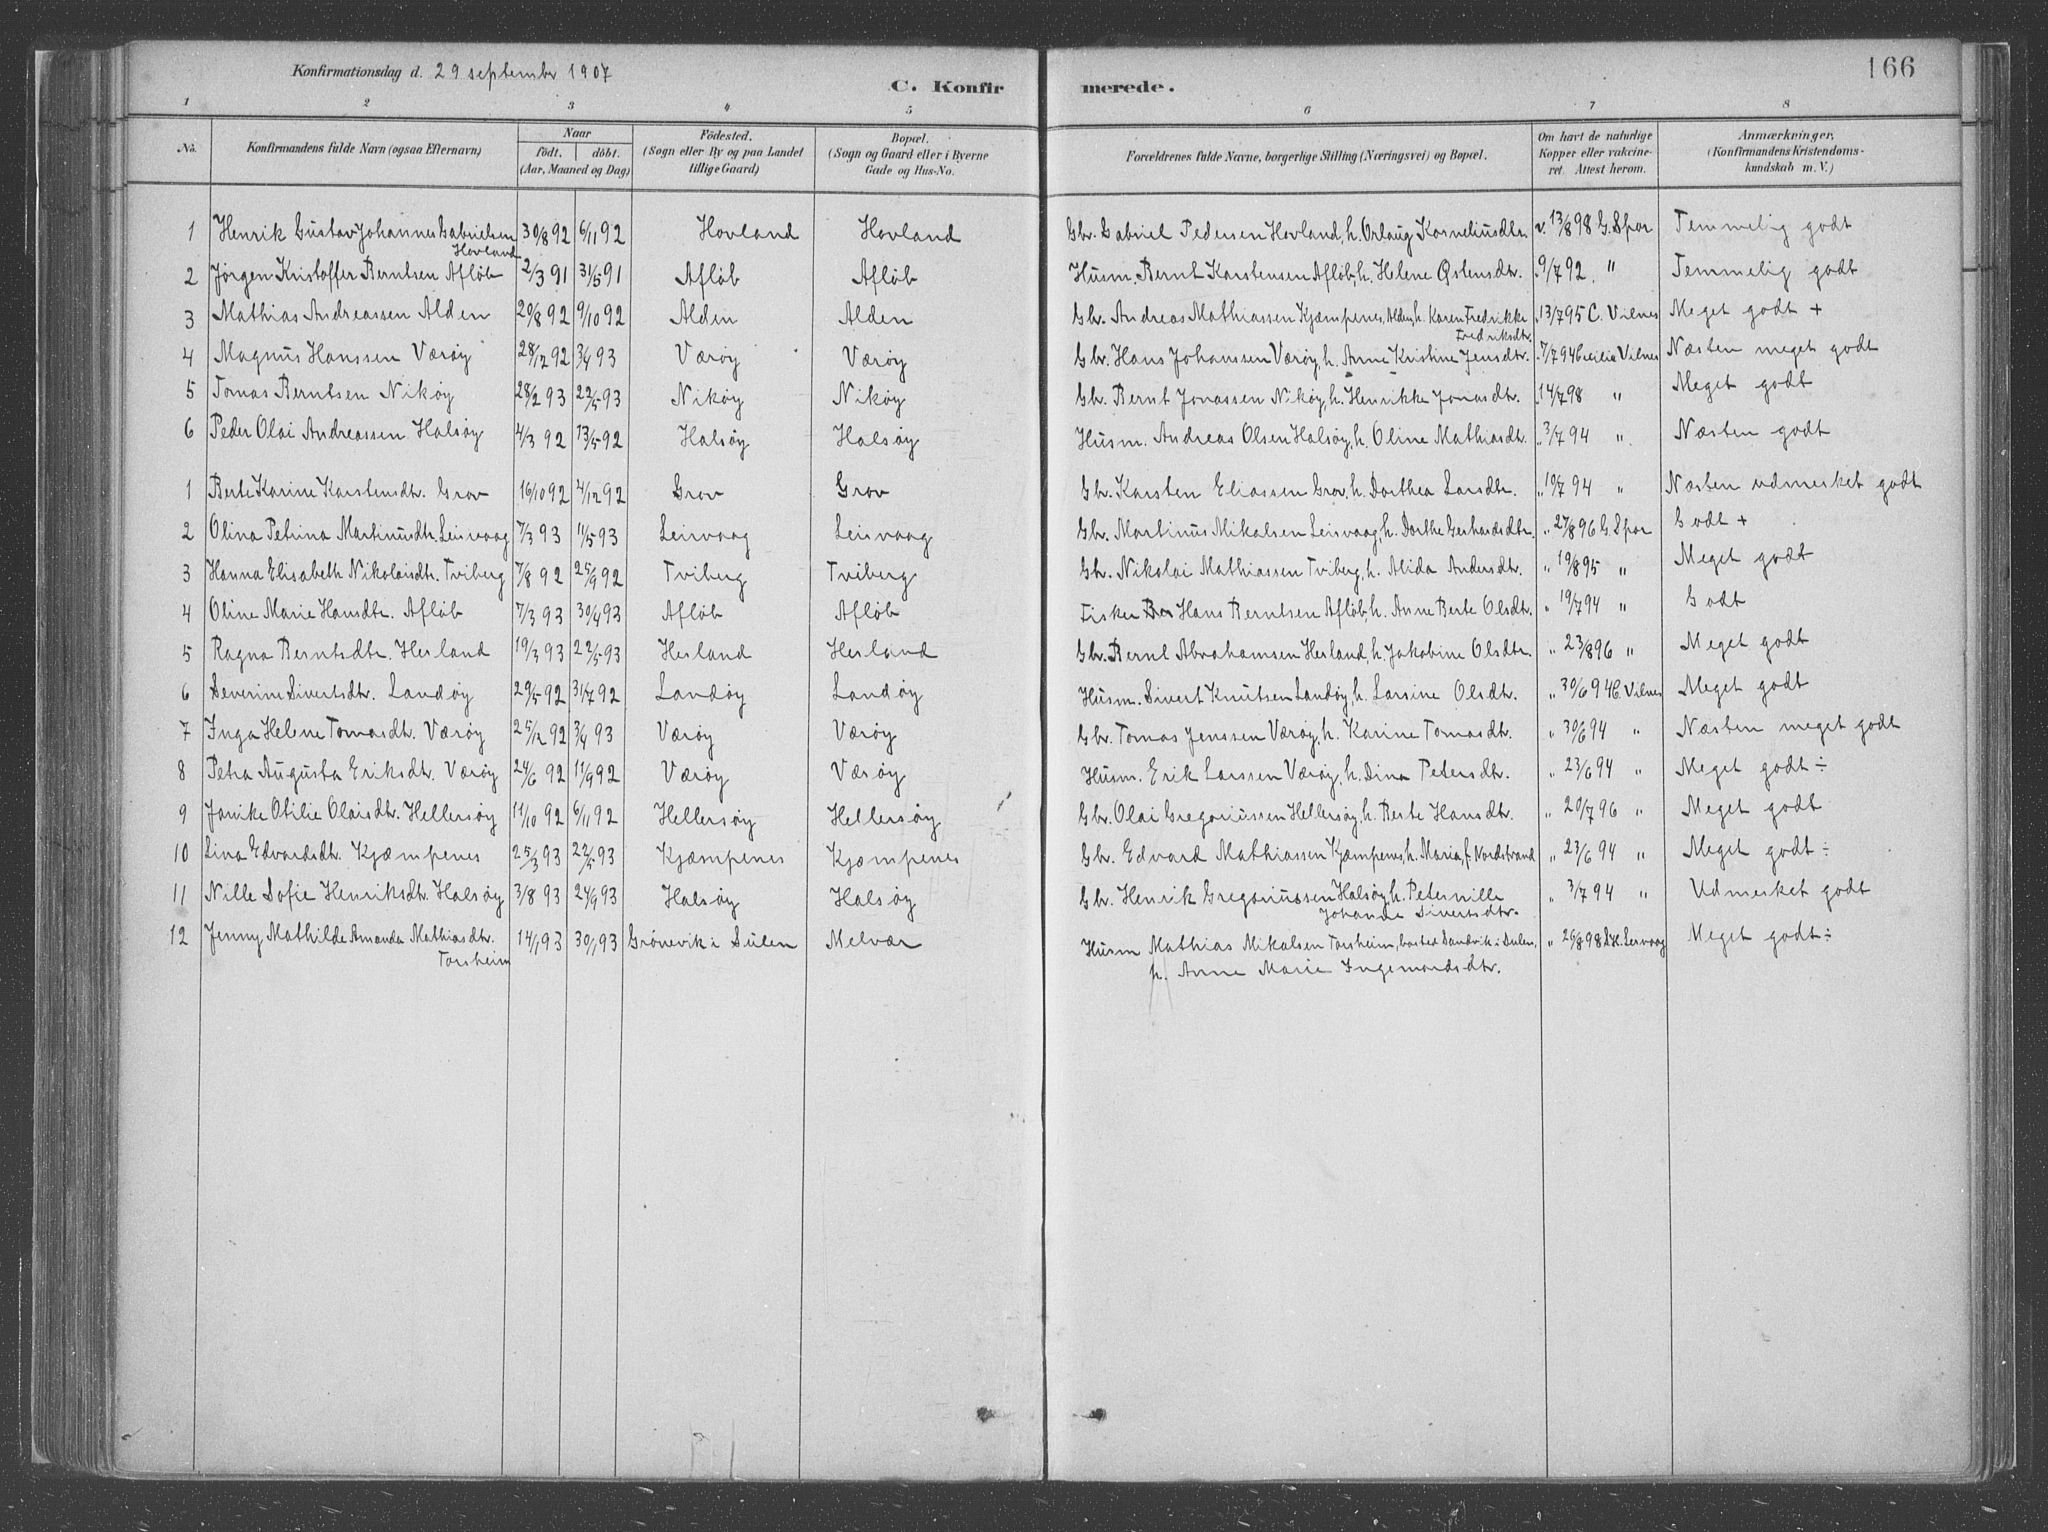 Konfirmationsdag d. 29 september 1907
166
C. Konfirmerede.
1 2 3 4 5 6 7 8
No. Konfirmandens fulde Navn (ogsaa Efternavn) Naar födt. döbt. (Aar, Maaned og Dag) Födested. (Sogn eller By og paa Landet tillige Gaard) Bopæl. (Sogn og Gaard eller i Byerne Gade og Hus-No. Forældrenes fulde Navne, borgerlige Stilling (Næringsvei) og Bopæl. Om havt de naturlige Kopper eller vakcineret. Attest herom. Anmærkninger. (Konfirmandens Kristendomskundskab m. V.)
1 Henrik Gustav Johannes Gabrielsen Hovland 30/8 92 6/11 92 Hovland Hovland Gbr. Gabriel Pedersen Hovland, h. Orlaug Korneliusdtr. v. 13/8 98 G. Spor Temmelig godt
2 Jørgen Kristoffer Berntsen Afløb 2/3 91 31/5 91 Afløb Afløb Husm. Bernt Karstensen Afløb, h. Helene Østensdtr. " 9/7 92 " Temmelig godt
3 Mathias Andreassen Alden 29/8 92 9/10 92 Alden Alden Gbr. Andreas Mathiassen Kjæmpenes, Alden, h. Karen Fredrikke Fredriksdtr. " 13/7 95 C. Vilnes Meget godt +
4 Magnus Hanssen Værøy 28/12 92 3/4 93 Værøy Værøy Gbr. Hans Johanssen Værøy, h. Anne Kristine Jensdtr. " 7/7 94 Cecilie Vilnes Næsten meget godt
5 Tomas Berntsen Nikøy 28/2 93 22/5 93 Nikøy Nikøy Gbr. Bernt Jonassen Nikøy, h. Henrikke Jonasdtr. " 14/7 98 " Meget godt
6 Peder Olai Andreassen Halsøy 4/3 92 13/5 92 Halsøy Halsøy Husm. Andreas Olsen Halsøy, h. Oline Mathiasdtr. " 3/7 94 " Næsten godt
1 Berte Karine Karstensdtr. Grov 16/10 92 4/12 92 Grov Grov Gbr. Karsten Eliassen Grov, h. Dorthea Larsdtr. " 10/7 94 " Næsten udmerket godt
2 Olina Petrina Martinusdtr. Leirvaag 7/3 93 11/5 93 Leirvaag Leirvaag Gbr. Martinus Mikalsen Leirvaag, h. Dorthe Gerhardsdtr. " 27/8 96 G. Spor Godt +
3 Hanna Elisabeth Nikolaisdtr. Tviberg 7/8 92 25/9 92 Tviberg Tviberg Gbr. Nikolai Mathiassen Tviberg, h. Alida Andersdtr. " 19/8 95 " Meget godt
4 Oline Marie Hansdtr. Afløb 7/3 93 30/4 93 Afløb Afløb Fisker Hans Berntsen Afløb, h. Anne Berte Olsdtr. " 19/7 94 " Godt
5 Ragna Berntsdtr. Herland 19/3 93 22/5 93 Herland Herland Gbr. Bernt Abrahamsen Herland, h. Jakobine Olsdtr. " 23/8 96 " Meget godt
6 Severine Sivertsdtr. Landøy 29/5 92 31/7 92 Landøy Landøy Husm. Sivert Knutsen Landøy, h. Larsine Olsdtr. " 30/6 94 C. Vilnes Meget godt
7 Inga Helene Tomasdtr. Værøy 25/12 92 3/4 93 Værøy Værøy Gbr. Tomas Jenssen Værøy, h. Karine Tomasdtr. " 30/6 94 " Næsten meget godt
8 Petra Augusta Eriksdtr. Værøy 24/6 92 11/9 92 Værøy Værøy Husm. Erik Larssen Værøy, h. Dina Petersdtr. " 23/6 94 " Meget godt ÷
9 Janike Otilie Olaisdtr. Hellersøy 11/10 92 6/11 92 Hellersøy Hellersøy Gbr. Olai Gregoriussen Hellersøy, h. Berte Hansdtr. " 20/7 96 " Meget godt
10 Lina Edvardsdtr. Kjæmpenes 25/3 93 22/5 93 Kjæmpenes Kjæmpenes Gbr. Edvard Mathiassen Kjæmpenes, h. Maria, f. Nordstrand " 23/6 94 " Meget godt ÷
11 Nille Sofie Henriksdtr. Halsøy 3/8 93 24/9 93 Halsøy Halsøy Gbr. Henrik Gregoriussen Halsøy, h. Peternille Johanne Sivertsdtr. " 3/7 94 " Udmerket godt
12 Jenny Mathilde Amanda Mathiasdtr. Torsheim 14/1 93 30/1 93 Grønevik i Sulen Melvær Husm Mathias Mikalsen Torsheim, bosted Sandvik i Sulen, h. Anne Marie Ingemardsdtr. " 26/8 98 Leirvaag Meget godt ÷